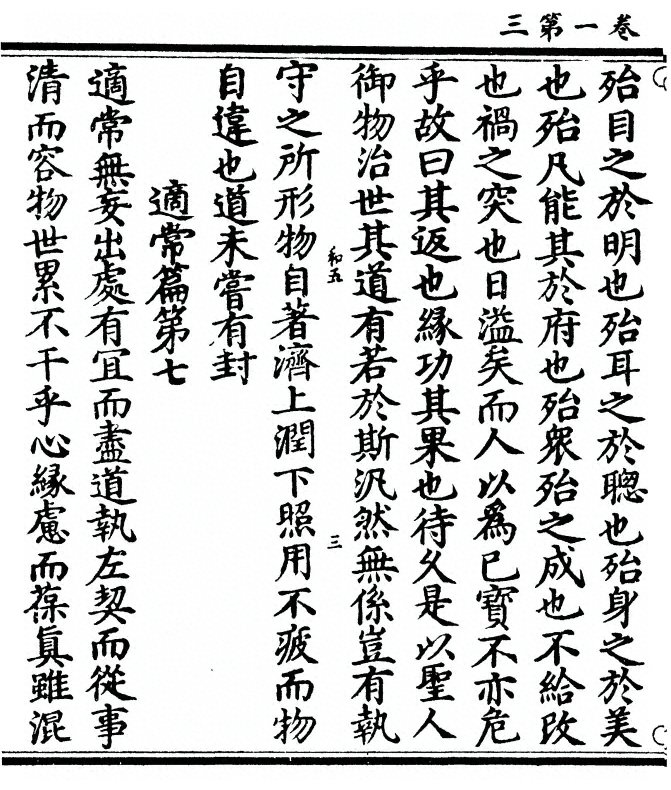 卷一第三
殆目之於明也殆耳之於聰也殆身之於美
也殆凡能其於府也殆衆殆之成也不給改
也禍之突也日溢矣而人以爲已寶不亦危
乎故曰其返也緣功其果也待久是以聖人
御物治世其道有若於斯汎然無係豈有執
和五
三
守之所形物自著濟上潤下照用不疲而物
自違也道未嘗有封
適常篇第七
適常無妄出處有宜而盡道執左契而從事
清而容物世累不干乎心緣慮而葆真雖混